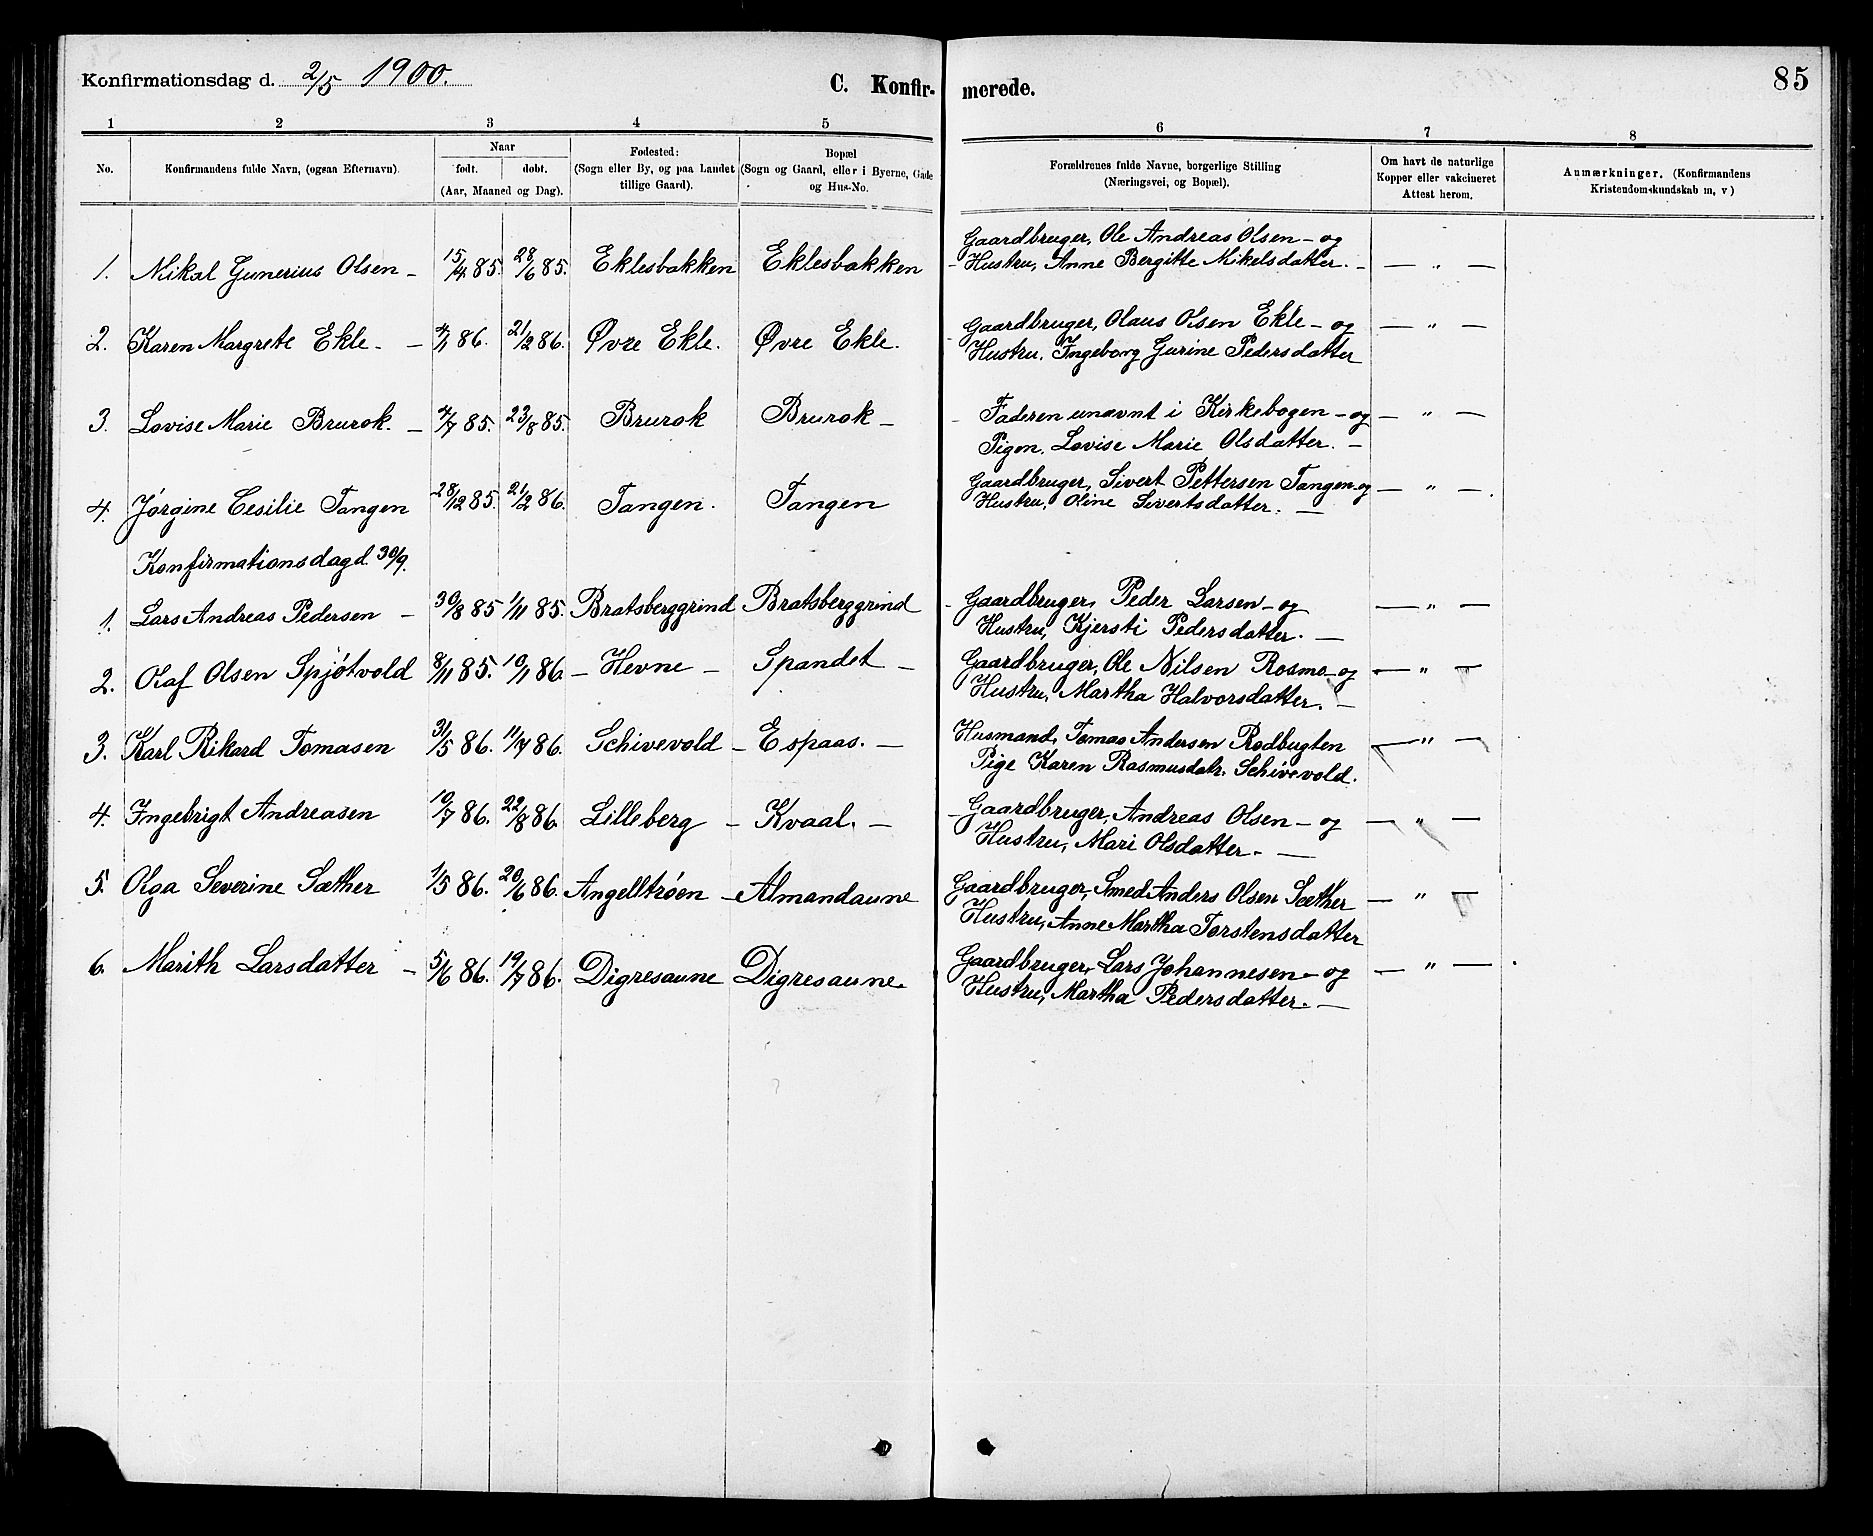 Konfirmationsdag d. 2/5 1900.
C. Konfir-merede.
85
1 2 3 4 5 6 7 8
No.
Konfirmandens fulde Navn, (ogsaa Efternavn).
Naar
født. døbt.
(Aar, Maaned og Dag).
Fødested:
(Sogn eller By, og paa Landet
tillige Gaard).
Bopæl
(Sogn og Gaard, eller i Byerne, Gade
og Hus-No.
Forældrenes fulde Navne, borgerlige Stilling
(Næringsvei, og Bopæl).
Om havt de naturlige
Kopper eller vakcineret
Attest herom.
Anmærkninger. (Konfirmandens
Kristendomskundskab m, v)
1. Mikal Gunerius Olsen - 15/4 85. 28/6 85. Eklesbakken Eklesbakken Gaardbruger, Ole Andreas Olsen - og
Hustru, Anne Bergitte Mikelsdatter. - — " —
2. Karen Margrete Ekle. - 4/1 86. 21/2 86. Øvre Ekle. Øvre Ekle. Gaardbruger, Olaus Olsen Ekle - og — " —
Hustru, Ingeborg Gurine Pedersdatter
3. Lovise Marie Brurok. - 4/7 85. 23/8 85. Brurok Brurok - Faderen unævnt i Kirkebogen - og — " —
Pigen, Lovise Marie Olsdatter. -
4. Jørgine Cesilie Tangen 28/12 85. 21/2 86. Tangen. Tangen Gaardbruger, Sivert Pettersen Tangen - og — " —.
Hustru, Oline Sivertsdatter. —
Konfirmationsdag d. 30/9.
1. Lars Andreas Pedersen - 30/8 85 1/11 85. Bratsberggrind Bratsberggrind Gaardbruger, Peder Larsen - og — " —
Hustru, Kjersti Pedersdatter. —
2. Olaf Olsen Spjøtvold 8/11 85. 10/1 86. - Hevne - Spandet - Gaardbruger, Ole Nilsen Rosmo - og — " —
Hustru, Martha Halvorsdatter. -
3. Karl Rikard Tomasen 31/5 86. 11/7 86. Schivevold - Espaas. - Husmand, Tomas Andersen Rodbugten — " —
Pige Karen Rasmusdatr. Schivevold.
4. Ingebrigt Andreasen 10/7 86. 22/8 86. Lilleberg - Kvaal. - Gaardbruger, Andreas Olsen - og — " —
Hustru, Mari Olsdatter. —
5. Olga Severine Sæther 1/5 86. 20/6 86. Angelltrøen - Almandaune Gaardbruger, Smed Anders Olsen Sæther — " —
Hustru, Anne Martha Torstensdatter
6. Marith Larsdatter - 5/6 86. 19/7 86. Digresaune Digresaune. Gaardbruger, Lars Johannesen - og — " —
Hustru, Martha Pedersdatter. —